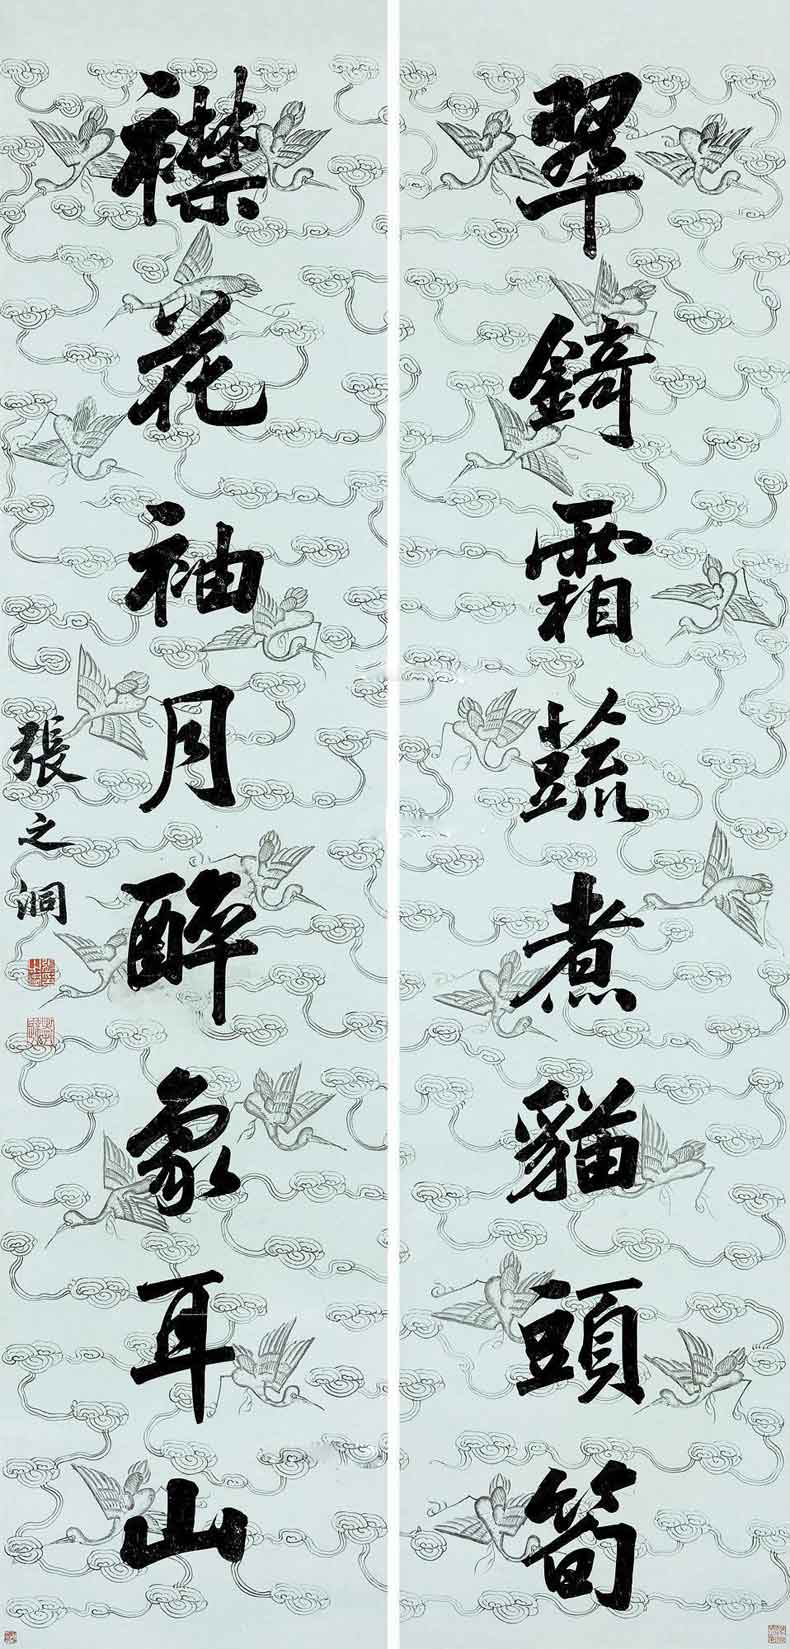 翠錡霜蔬煮貓頭筍
襟花袖月醉象耳山
張之洞